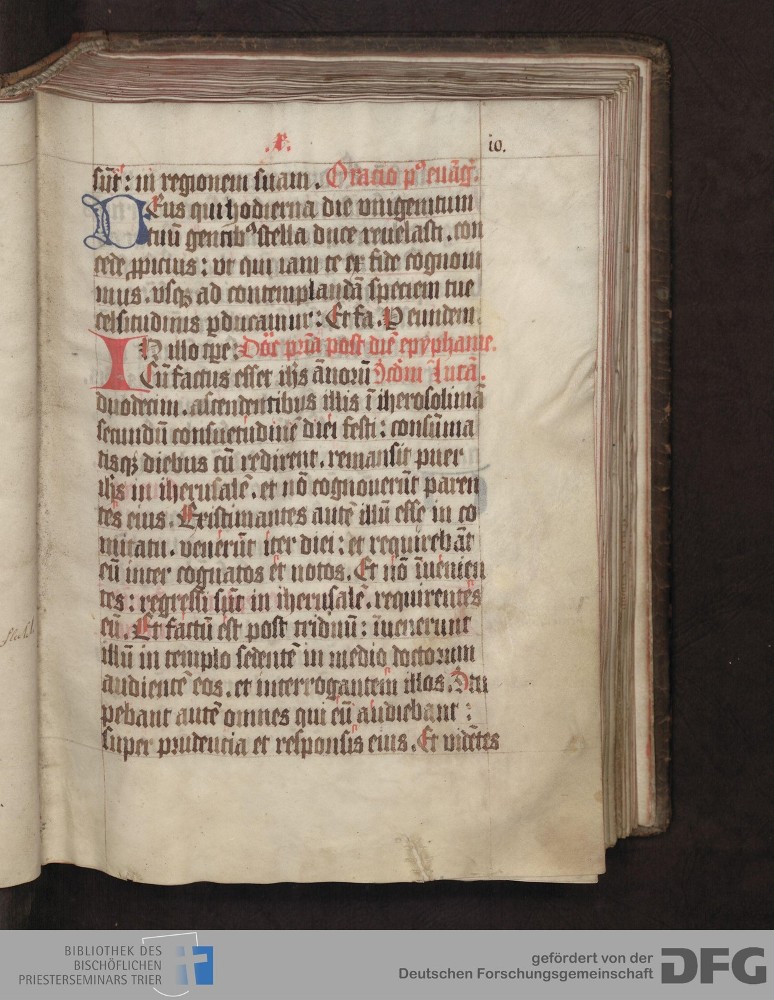 .x. 10.
sūt : in regionem suam . Oratio pꝰ euāg̅.
Deus qui hodierna die vnigenitum
tuū gentibꝰ stella duce reuelasti . con
cede ꝓpicius : vt qui iam te ex fide cognoui
mus . vsqꝫ ad contemplandā speciem tue
celsitudinis ꝑducamur : Et fa . P eundem .
IN illo tꝑe : Dōc prīa post diē epyphanie .
Cū factus esset ihs̄ ānorū Scdm̄ lucā .
duodecim . ascendentibus illis ī iherosolimā
secundū consuetudinē diei festi : consūma
tisqꝫ diebus cū redirent . remansit puer
ihs̄ in iherusalē . et nō cognouerūt paren
tes eius . Existimantes autē illū esse in co
mitatu . venerūt iter diei : et requirebāt
eū inter cognatos et notos . Et nō īuenien
tes : regressi sūt in iherusalē . requirentes
eū . Et factū est post triduū : īuenerunt
illū in templo sedentē in medio doctorum
audientē eos . et interrogantem illos . Stu
pebant autē omnes qui eū audiebant :
super prudentia et responsis eius . Et vidētes
BIBLIOTHEK DES
BISCHÖFLICHEN
PRIESTERSEMINARS TRIER
gefördert von der
Deutschen Forschungsgemeinschaft DFG